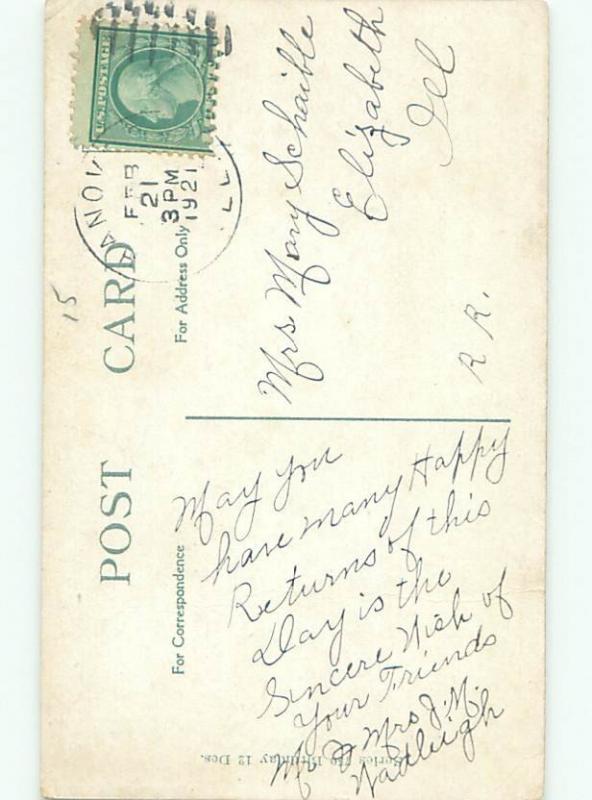 POST CARD
For Correspondence
For Address Only
U.S. POSTAGE
FEB
21
3 PM
1921
ILL
15
May you
have many Happy
Returns of this
Day is the
Sincere Wish of
Your Friends
Mr & Mrs J.M.
Wadleigh
Mrs Mary Schaible
Elizabeth
Ill
R R.
Birthday 12 Des.